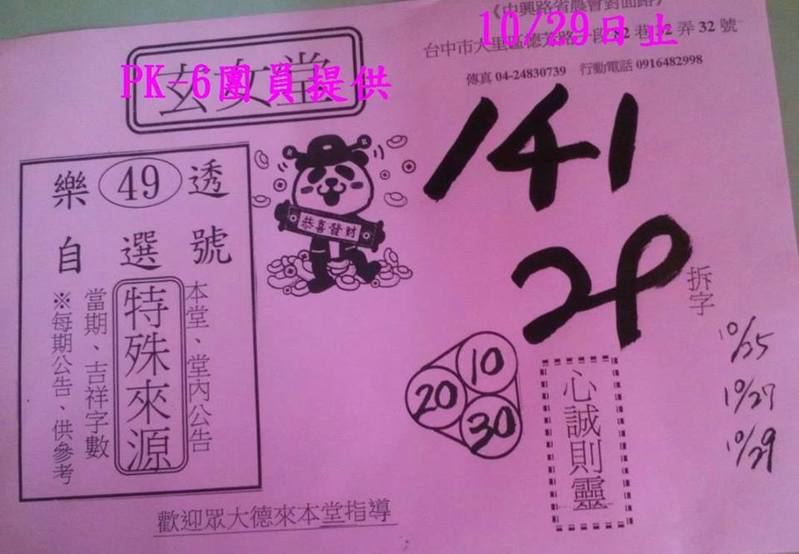 《中興路省農會對面路》
10/29日止
台中市大里區德芳路一段82巷12弄32號
傳真 04-24830739 行動電話 0916482998
玄女堂
PK-6團員提供
樂 49 透
自選號
本堂、堂內公告
特殊來源
當期、吉祥字數
※每期公告、供參考
恭喜發財
141
29
拆字
10
20
30
心誠則靈
10/25
10/27
10/29
歡迎眾大德來本堂指導